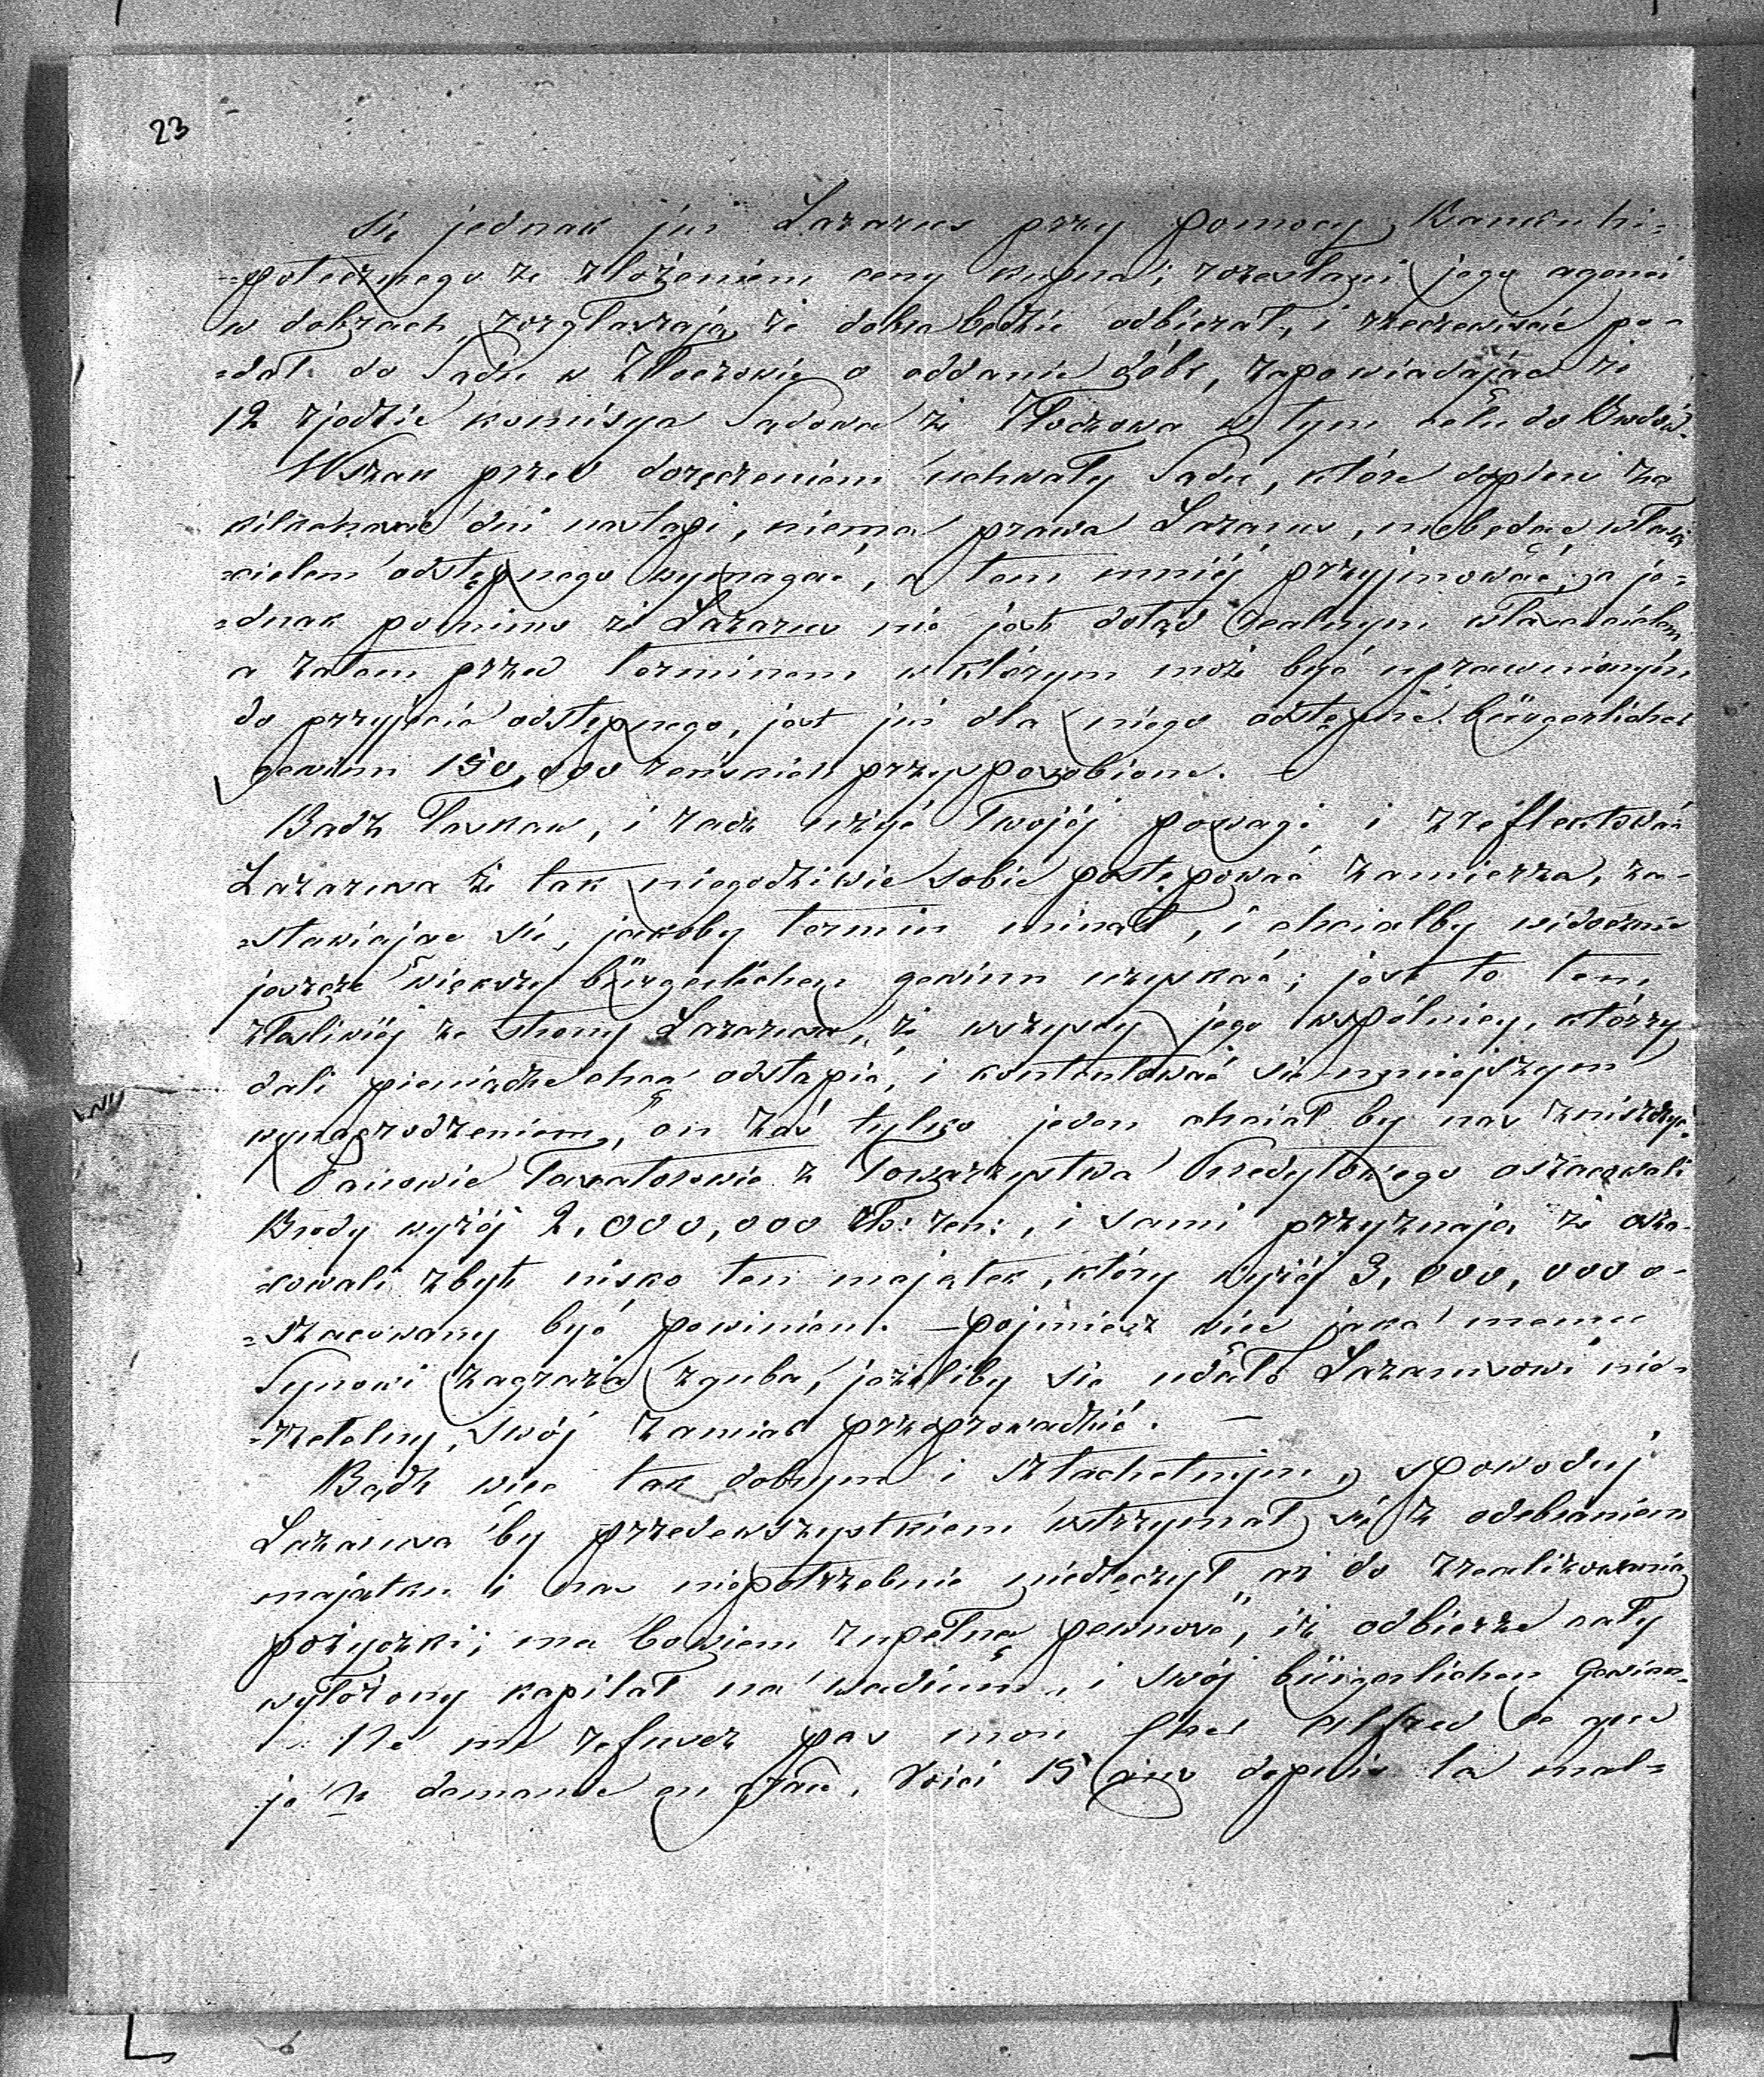 23
się jednak już Lazarus przy pomocy Banku hi-
-potecznego ze złożeniem ceny kupna; rozesłani jego agenci
w dobrach rozgłaszają że dobra będzie odbierał, i rzeczewiście po-
=dał do Sądu w Złoczowie o oddanie dóbr, zapowiadając że
12 zjedzie komisya Sądowa ze Złoczowa w tym celu do Brodów.
Wszak przed doręczeniem uchwały Sądu, które dopiero za
kilkanaście dni nastąpi, niema prawa Lazarus, niebędąc właści
=cielem odstępnego wymagać, a tem mniéj przyjmować; ja je=
=dnak pomimo że Lazarus nie jest dotąd realnym właścicielem
a zatem przed terminem w którym może być uprawnionym
do przyjęcia odstępnego, jest już dla niego odstępne bürgerlicher
gewinn 150,000 reńskich przysposobione. —
Bądź łaskaw, i racz użyć Twojéj powagi i zreflektować
Lazarusa że tak niegodziwie sobie postępować zamierza, za-
=stawiając się, jakoby termin minął, i chciałby widocznie
jeszcze większy bürgerlichen gewinn uzyskać; jest to tem
złośliwiéj ze strony Lazarusa, że wszyscy jego wspólnicy, którzy
dali pieniądze chcą odstąpić, i kontentować się mniejszym
wynagrodzeniem, on zaś tylko jeden chciał by nas zniszczyć.
Panowie Taxatorowie z Towarzystwa Kredytowego oszacowali
Brody wyżéj 2,000,000 Zł: ren:, i sami przyznają że osza-
-cowali zbyt nisko ten majątek, który wyżéj 3,000,000 o-
=szacowany być powinien. — pojmiesz więc jaka memu
Synowi zagraża zguba, jeżeliby się udało Lazarusowi nie-
-rzetelny swój zamiar przeprowadzić. —
Bądź więc tak dobrym i szlachetnym, spowoduj
Lazarusa by przedewszystkiem wstrzymał się z odebraniem
majątku i nas niepotrzebnie niedręczył aż do zrealizowania
pożyczki; ma bowiem zupełną pewność, iż odbierze cały
wyłożony kapitał na wadium, i swój bürgerlichen Gewinn.
Ne me refusez pas mon cher Alfred ce que
je te demande en grace, Voici 15 ans depuis la mal=